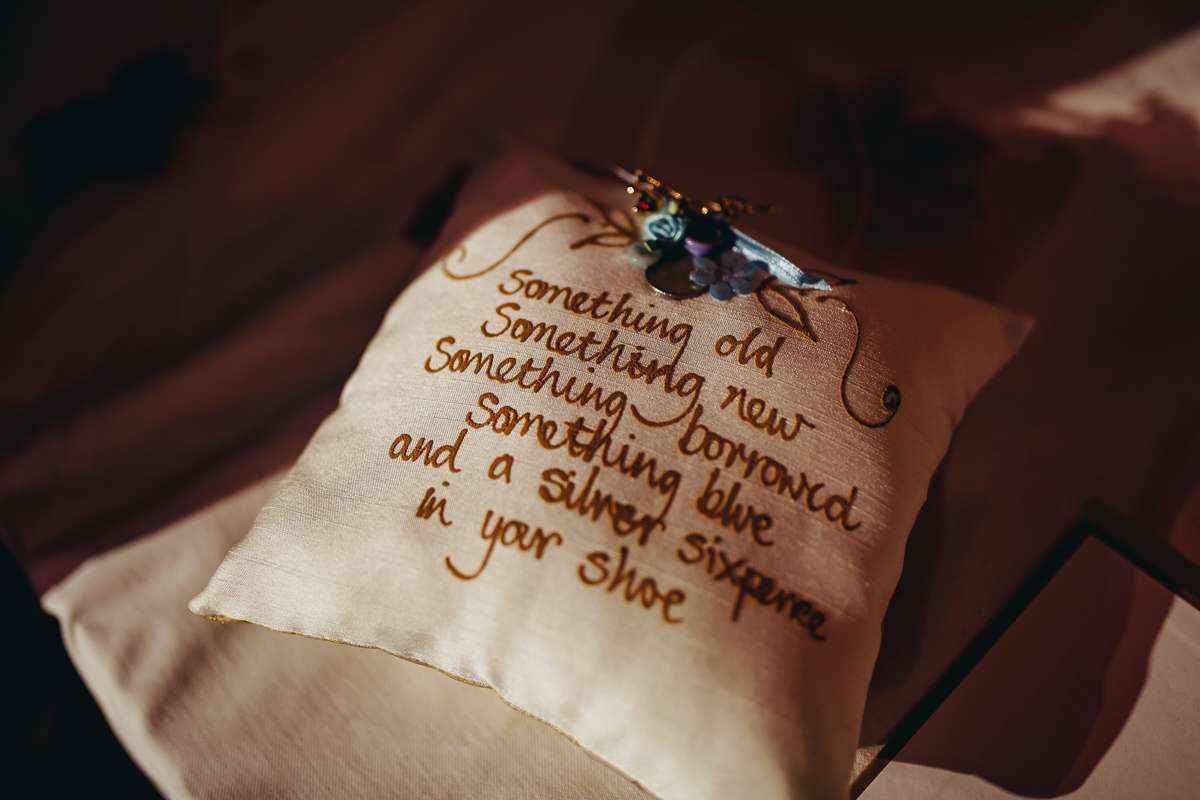 Something old
Something new
Something borrowed
Something blue
and a silver sixpence
in your shoe